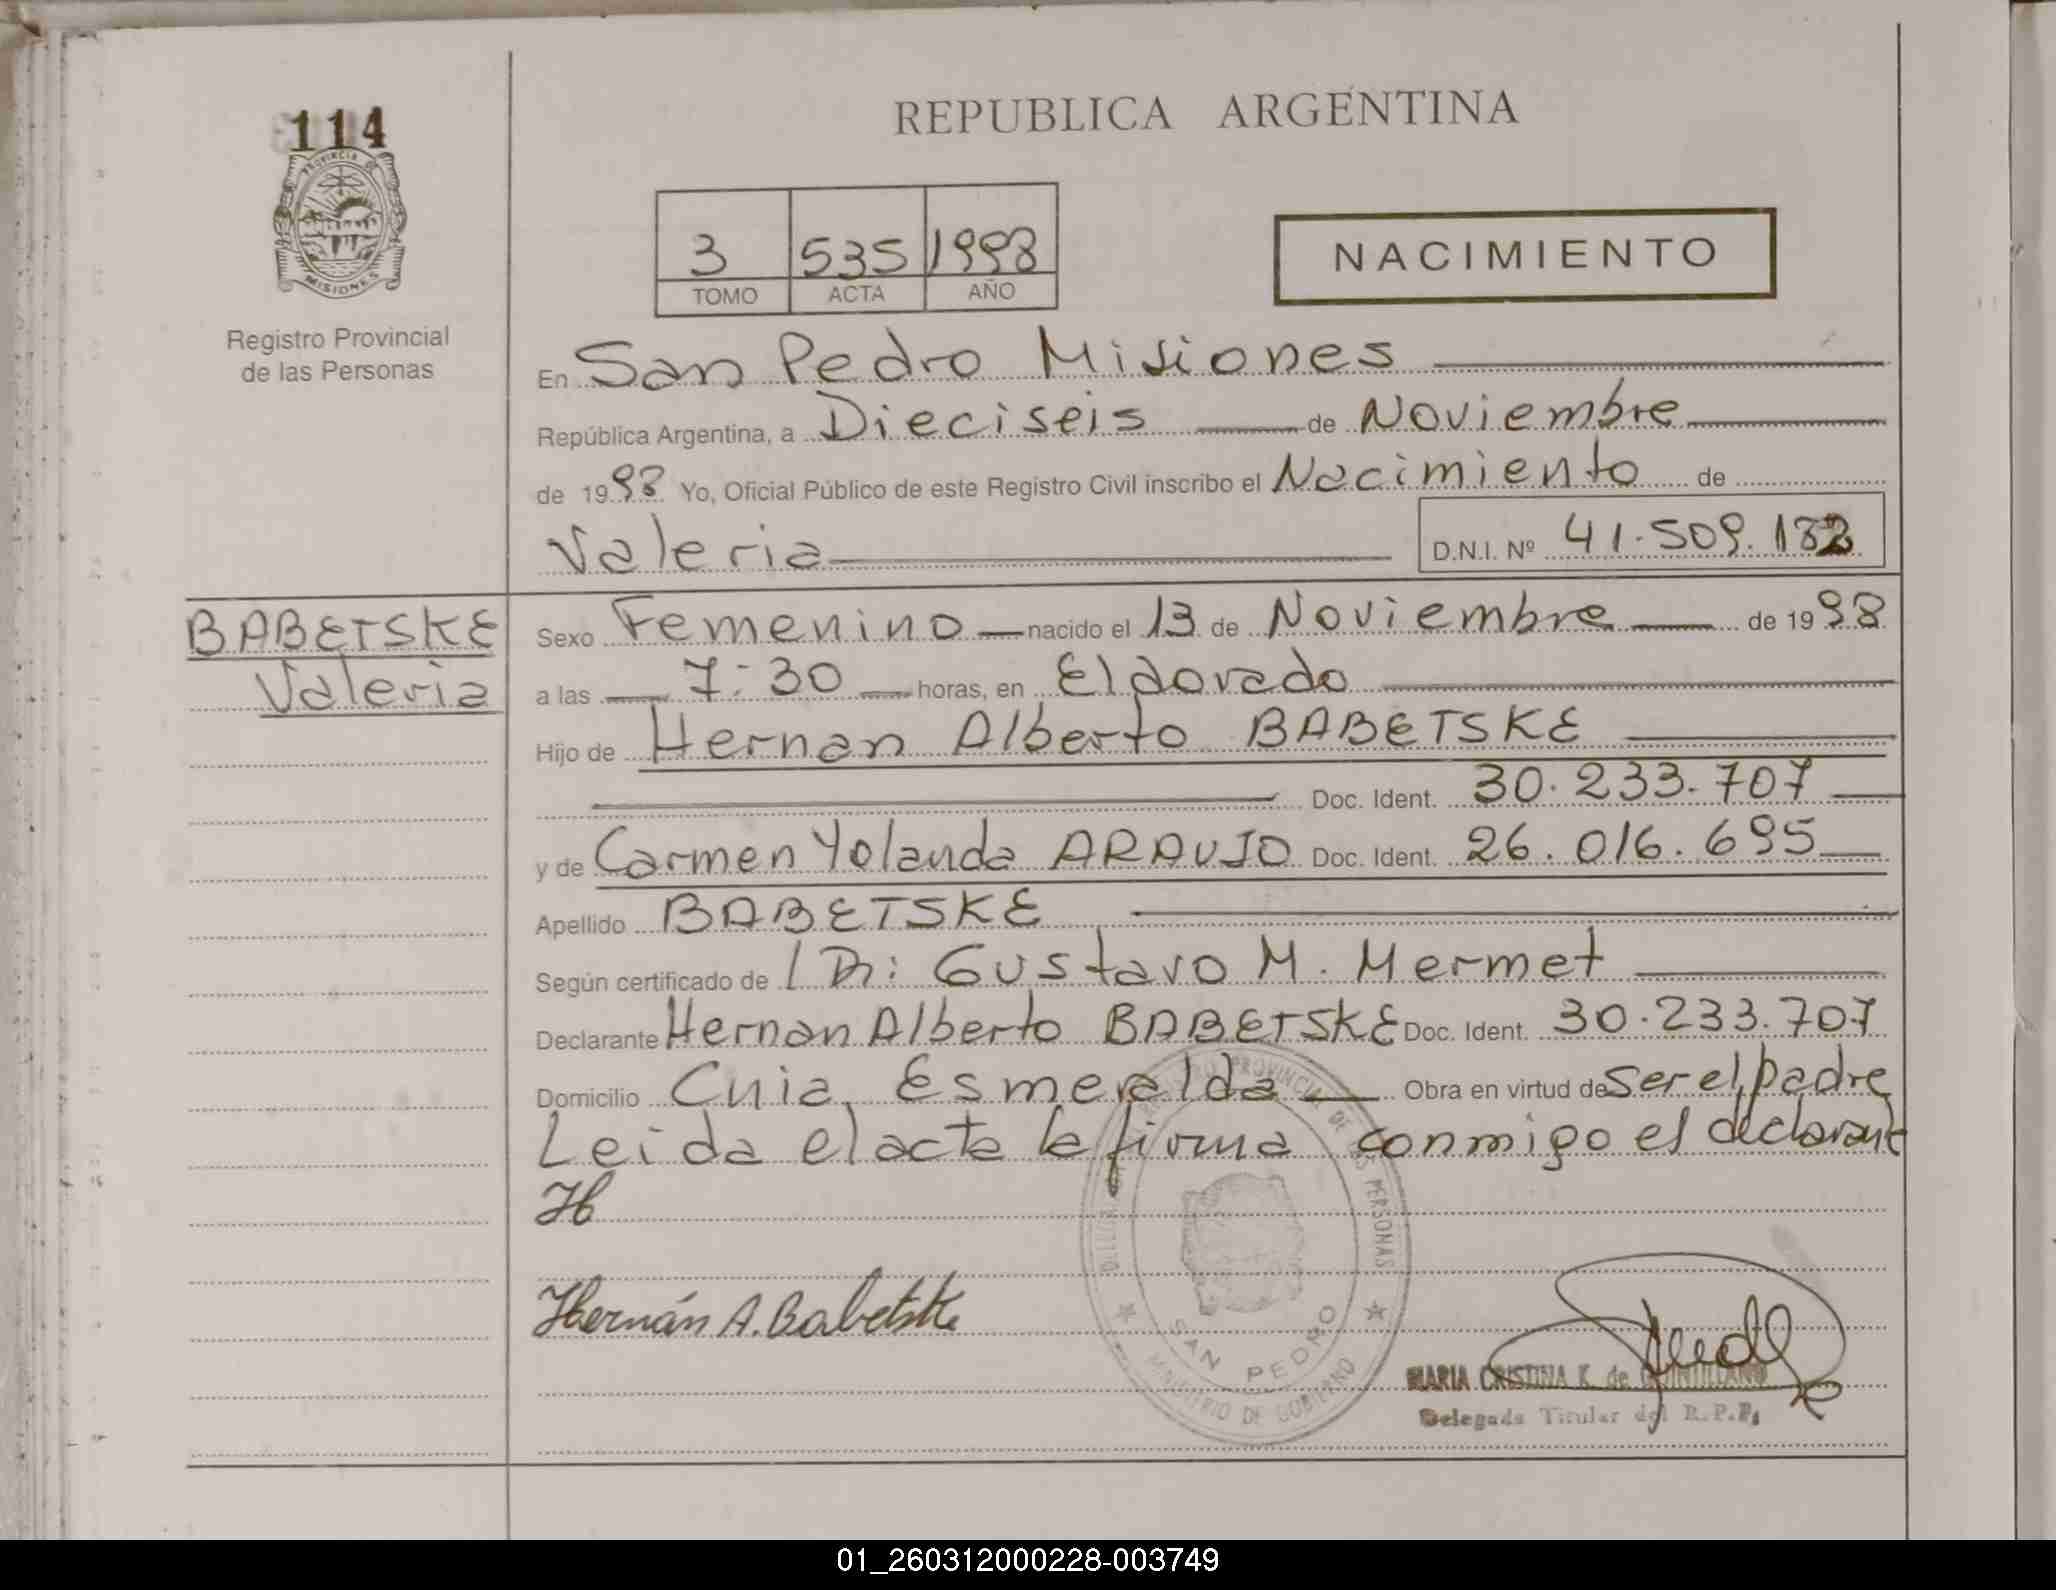 114
PROVINCIA DE
MISIONES
Registro Provincial
de las Personas
REPUBLICA ARGENTINA
3 535 1998
TOMO ACTA AÑO
NACIMIENTO
En San Pedro Misiones
República Argentina, a Dieciseis de Noviembre
de 1998 Yo, Oficial Público de este Registro Civil inscribo el Nacimiento de
Valeria D.N.I. Nº 41.509.182
BABETSKE
Valeria
Sexo Femenino nacido el 13 de Noviembre de 1998
a las 7:30 horas, en Eldorado
Hijo de Hernan Alberto BABETSKE
Doc. Ident. 30.233.707
y de Carmen Yolanda ARAUJO Doc. Ident. 26.016.695
Apellido BABETSKE
Según certificado de Dr: Gustavo M. Mermet
Declarante Hernan Alberto BABETSKE Doc. Ident. 30.233.707
Domicilio Cnia. Esmeralda Obra en virtud de ser el padre
Leida el acta la firma conmigo el declarante
H
Hernán A. Babetske
REGISTRO PROVINCIAL DE LAS PERSONAS
SAN PEDRO
MINISTERIO DE GOBIERNO
MARIA CRISTINA K. de QUINTILIANO
Delegada Titular del R.P.P.
01_260312000228-003749